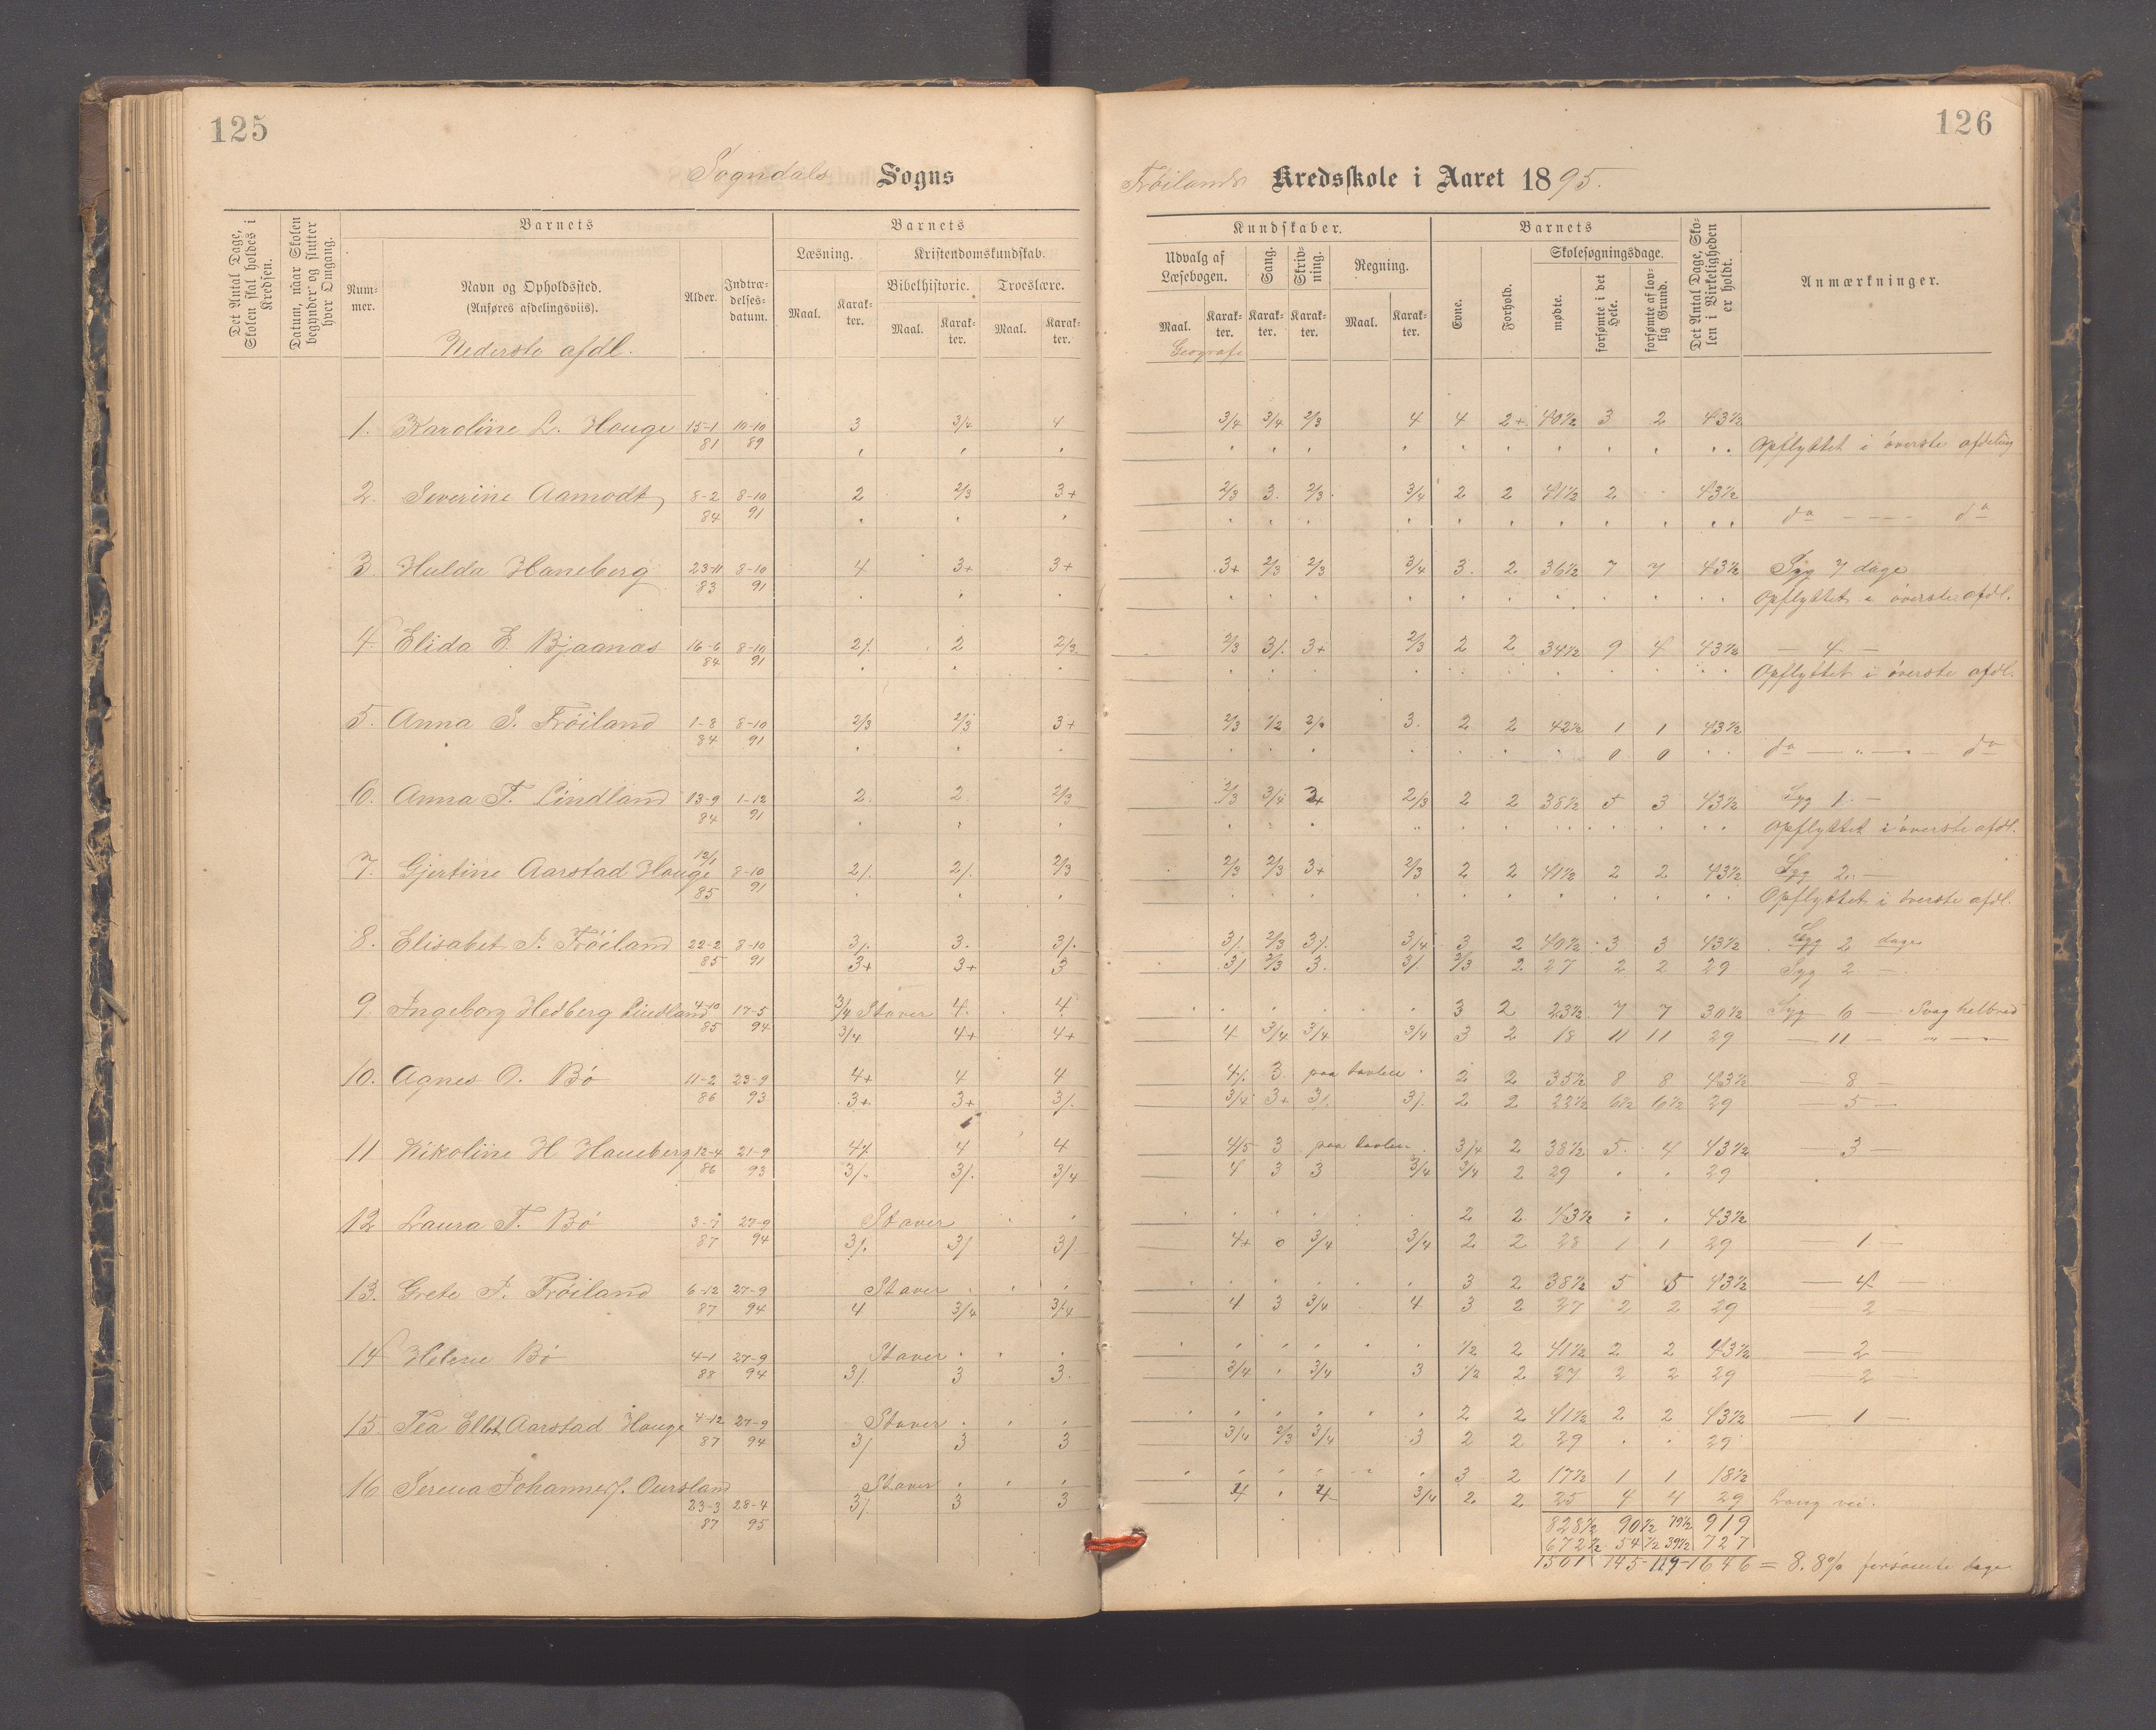 125
126
Sogndals Sogns
Frøilands Kredsskole i Aaret 1895.
Det Antal Dage, Skolen skal holdes i Kredsen.
Datum, naar Skolen begynder og slutter hver Omgang.
Barnets
Num-mer.
Navn og Opholdssted.
(Anføres afdelingsviis).
Nederste afdl.
Alder.
Indtræ-delses-datum.
Barnets
Læsning.
Kristendomskundskab.
Bibelhistorie.
Troeslære.
Maal.
Karak-ter.
Maal.
Karak-ter.
Maal.
Karak-ter.
Kundskaber.
Udvalg af Læsebogen.
Sang.
Skriv-ning.
Regning.
Maal.
Karak-ter.
Karak-ter.
Karak-ter.
Maal.
Karak-ter.
Geografi
Barnets
Evne.
Forhold.
Skolesøgningsdage.
mødte.
forsømte i det Hele.
forsømte af lov-lig Grund.
Det Antal Dage, Sko-len i Virkeligheden er holdt.
Anmærkninger.
1. Karoline L. Hauge 15-1 10-10 3 3/4 4 3/4 3/4 2/3 4 4 2+ 40½ 3 2 43½
81 89 Opflyttet i överste afdeling
2. Severine Aamodt 8-2 8-10 2 2/3 3+ 2/3 3. 2/3 3/4 2 2 41½ 2 43½
84 91 do do
3 Hulda Haneberg 23-11 8-10 4 3+ 3+ 3+ 2/3 2/3 3/4 3. 2 36½ 7 7 43½ Syg 7 dage
83 91 Opflyttet i överste afdl.
4 Elida E. Bjaanæs 16-6 8-10 2/. 2 2/3 2/3 3/. 3+ 2/3 2 2 34½ 9 4 43½ — 4 —
84 91 Opflyttet i överste afdl.
5. Anna S. Fröiland 1-8 8-10 2/3 2/3 3+ 2/3 ½ 2/. 3. 2 2 42½ 1 1 43½
84 91 0 0 do do
6. Anna T. Lindland 13-9 1-12 2. 2 2/3 2/3 3/4 2+ 2/3 2 2 38½ 5 3 43½ Syg 1. —
84 91 Opflyttet i överste afdl.
7. Gjertine Aarstad Hauge 12/1 8-10 2/. 2/. 2/3 2/3 2/3 3+ 2/3 2 2 41½ 2 2 43½ Syg 2. —
85 91 Opflyttet i överste afdl.
8. Elisabet J. Fröiland 22-2 8-10 3/. 3. 3/. 3/. 2/3 3/. 3/4 3 2 40½ 3 3 43½ Syg 2 dage
85 91 3+ 3+ 3 3/ 2/3 3. 3/. 2/3 2 27 2 2 29 Syg 2 —
9. Ingeborg Hedberg Lindland 4-10 17-5 3/4 Staver 4. 4 3 2 23½ 7 7 30½ Syg 6 — Svag helbred
85 94 3/4 4+ 4+ 4 3/4 3/4 3/4 3 2 18 11 11 29 — 11 — „ —
10. Agnes O. Bö 11-2 23-9 4+ 4 4 4/. 3 paa tavlen 2 2 35½ 8 8 43½ — 8 —
86 93 3+ 3+ 3/. 3/4 3+ 3/. 3/. 2 2 22½ 6½ 6½ 29 — 5 —
11 Nikoline H Haneberg 12-4 21-9 4/. 4 4 4/5 3 paa tavlen 3/4 2 38½ 5 4 43½ — 3 —
86 93 3/. 3/. 3/4 4 3 3 3/4 3/4 2 29 29
12 Laura T. Bö 3-7 27-9 Staver 2 2 43½ 43½
87 94 3/. 3/ 3/ 4+ 0 3/4 3/4 2 2 28 1 1 29 — 1 —
13. Grete J. Fröiland 6-12 27-9 Staver 3 2 38½ 5 5 43½ — 4 —
87 94 4 3/4 3/4 4 3 3/4 4 3 2 27 2 2 29 — 2 —
14 Helene Bö 4-1 27-9 Staver ½ 2 41½ 2 2 43½ — 2 —
88 94 3/. 3 3. 3/4 3/4 3 ½ 2 27 2 2 29 — 2 —
15 Tea Elbt Aarstad Hauge 4-12 27-9 Staver 2 2 41½ 2 2 43½ — 1 —
87 94 3/ 3 3 3/4 2/3 3/4 3 2 2 29 29
16 Serena Johanne J. Oursland Staver 3 2 17½ 1 1 18½
23-3 28-4 3/. 3 3 4 4 3/4 2 2 25 4 4 29 Lang vei.
87 95
828½ 90½ 79½ 919
672½ 54½ 39½ 727
1501 145-119-1646 = 8.8% forsömte dage